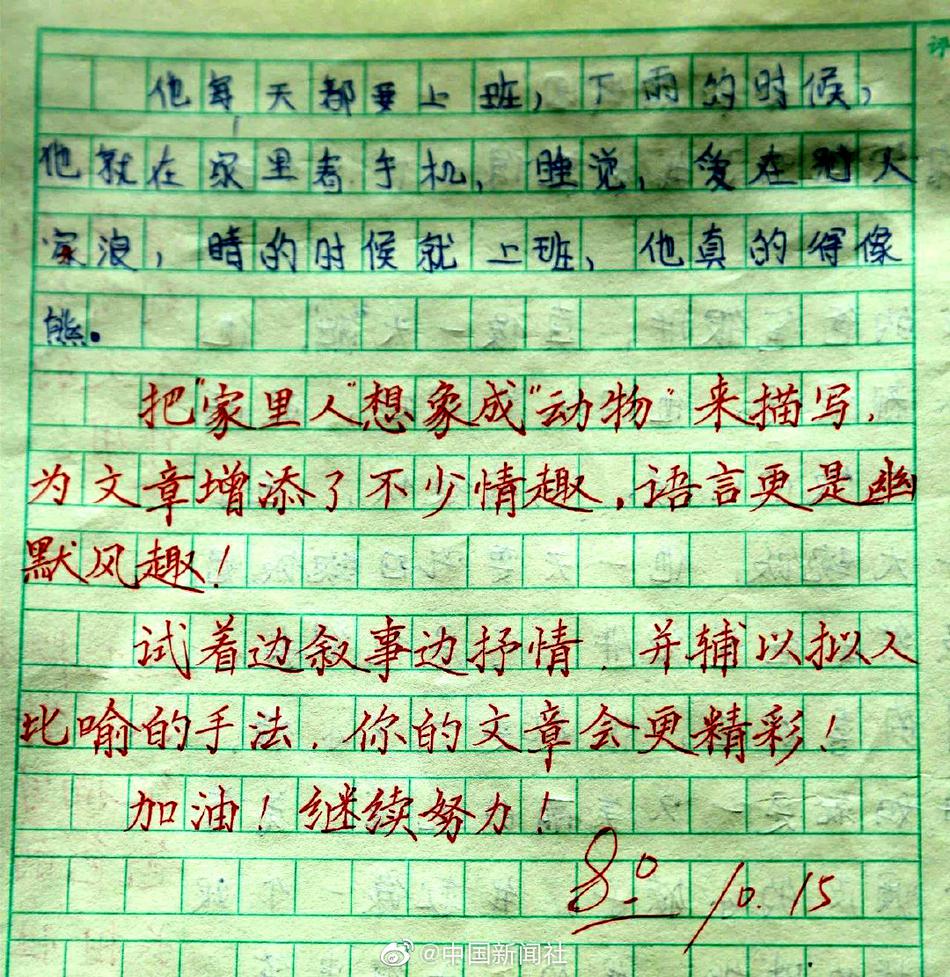 他每天都要上班，下雨的时候，
他就在家里看手机，睡觉，爱在天
浪，晴的时候就上班，他真的得像
熊。
把“家里人”想象成“动物”来描写，
为文章增添了不少情趣，语言更是幽
默风趣！
试着边叙事边抒情，并辅以拟人
比喻的手法，你的文章会更精彩！
加油！继续努力！
80 10.15
@中国新闻社